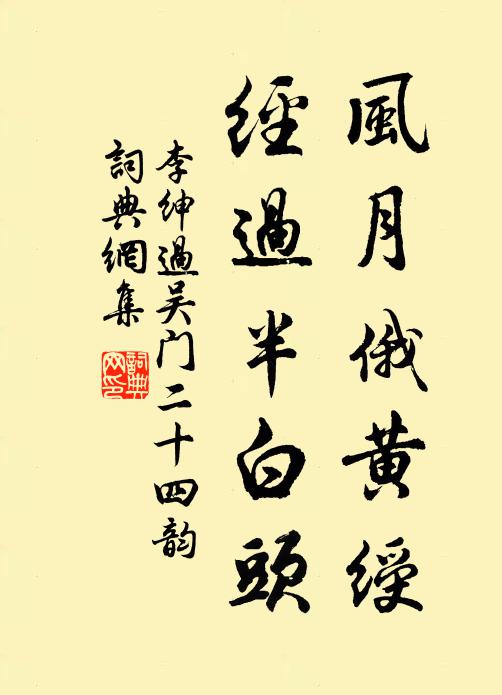 風月俄黄綬
經過半白頭
李紳過吴门二十四韵
詞典網集
詞典網印